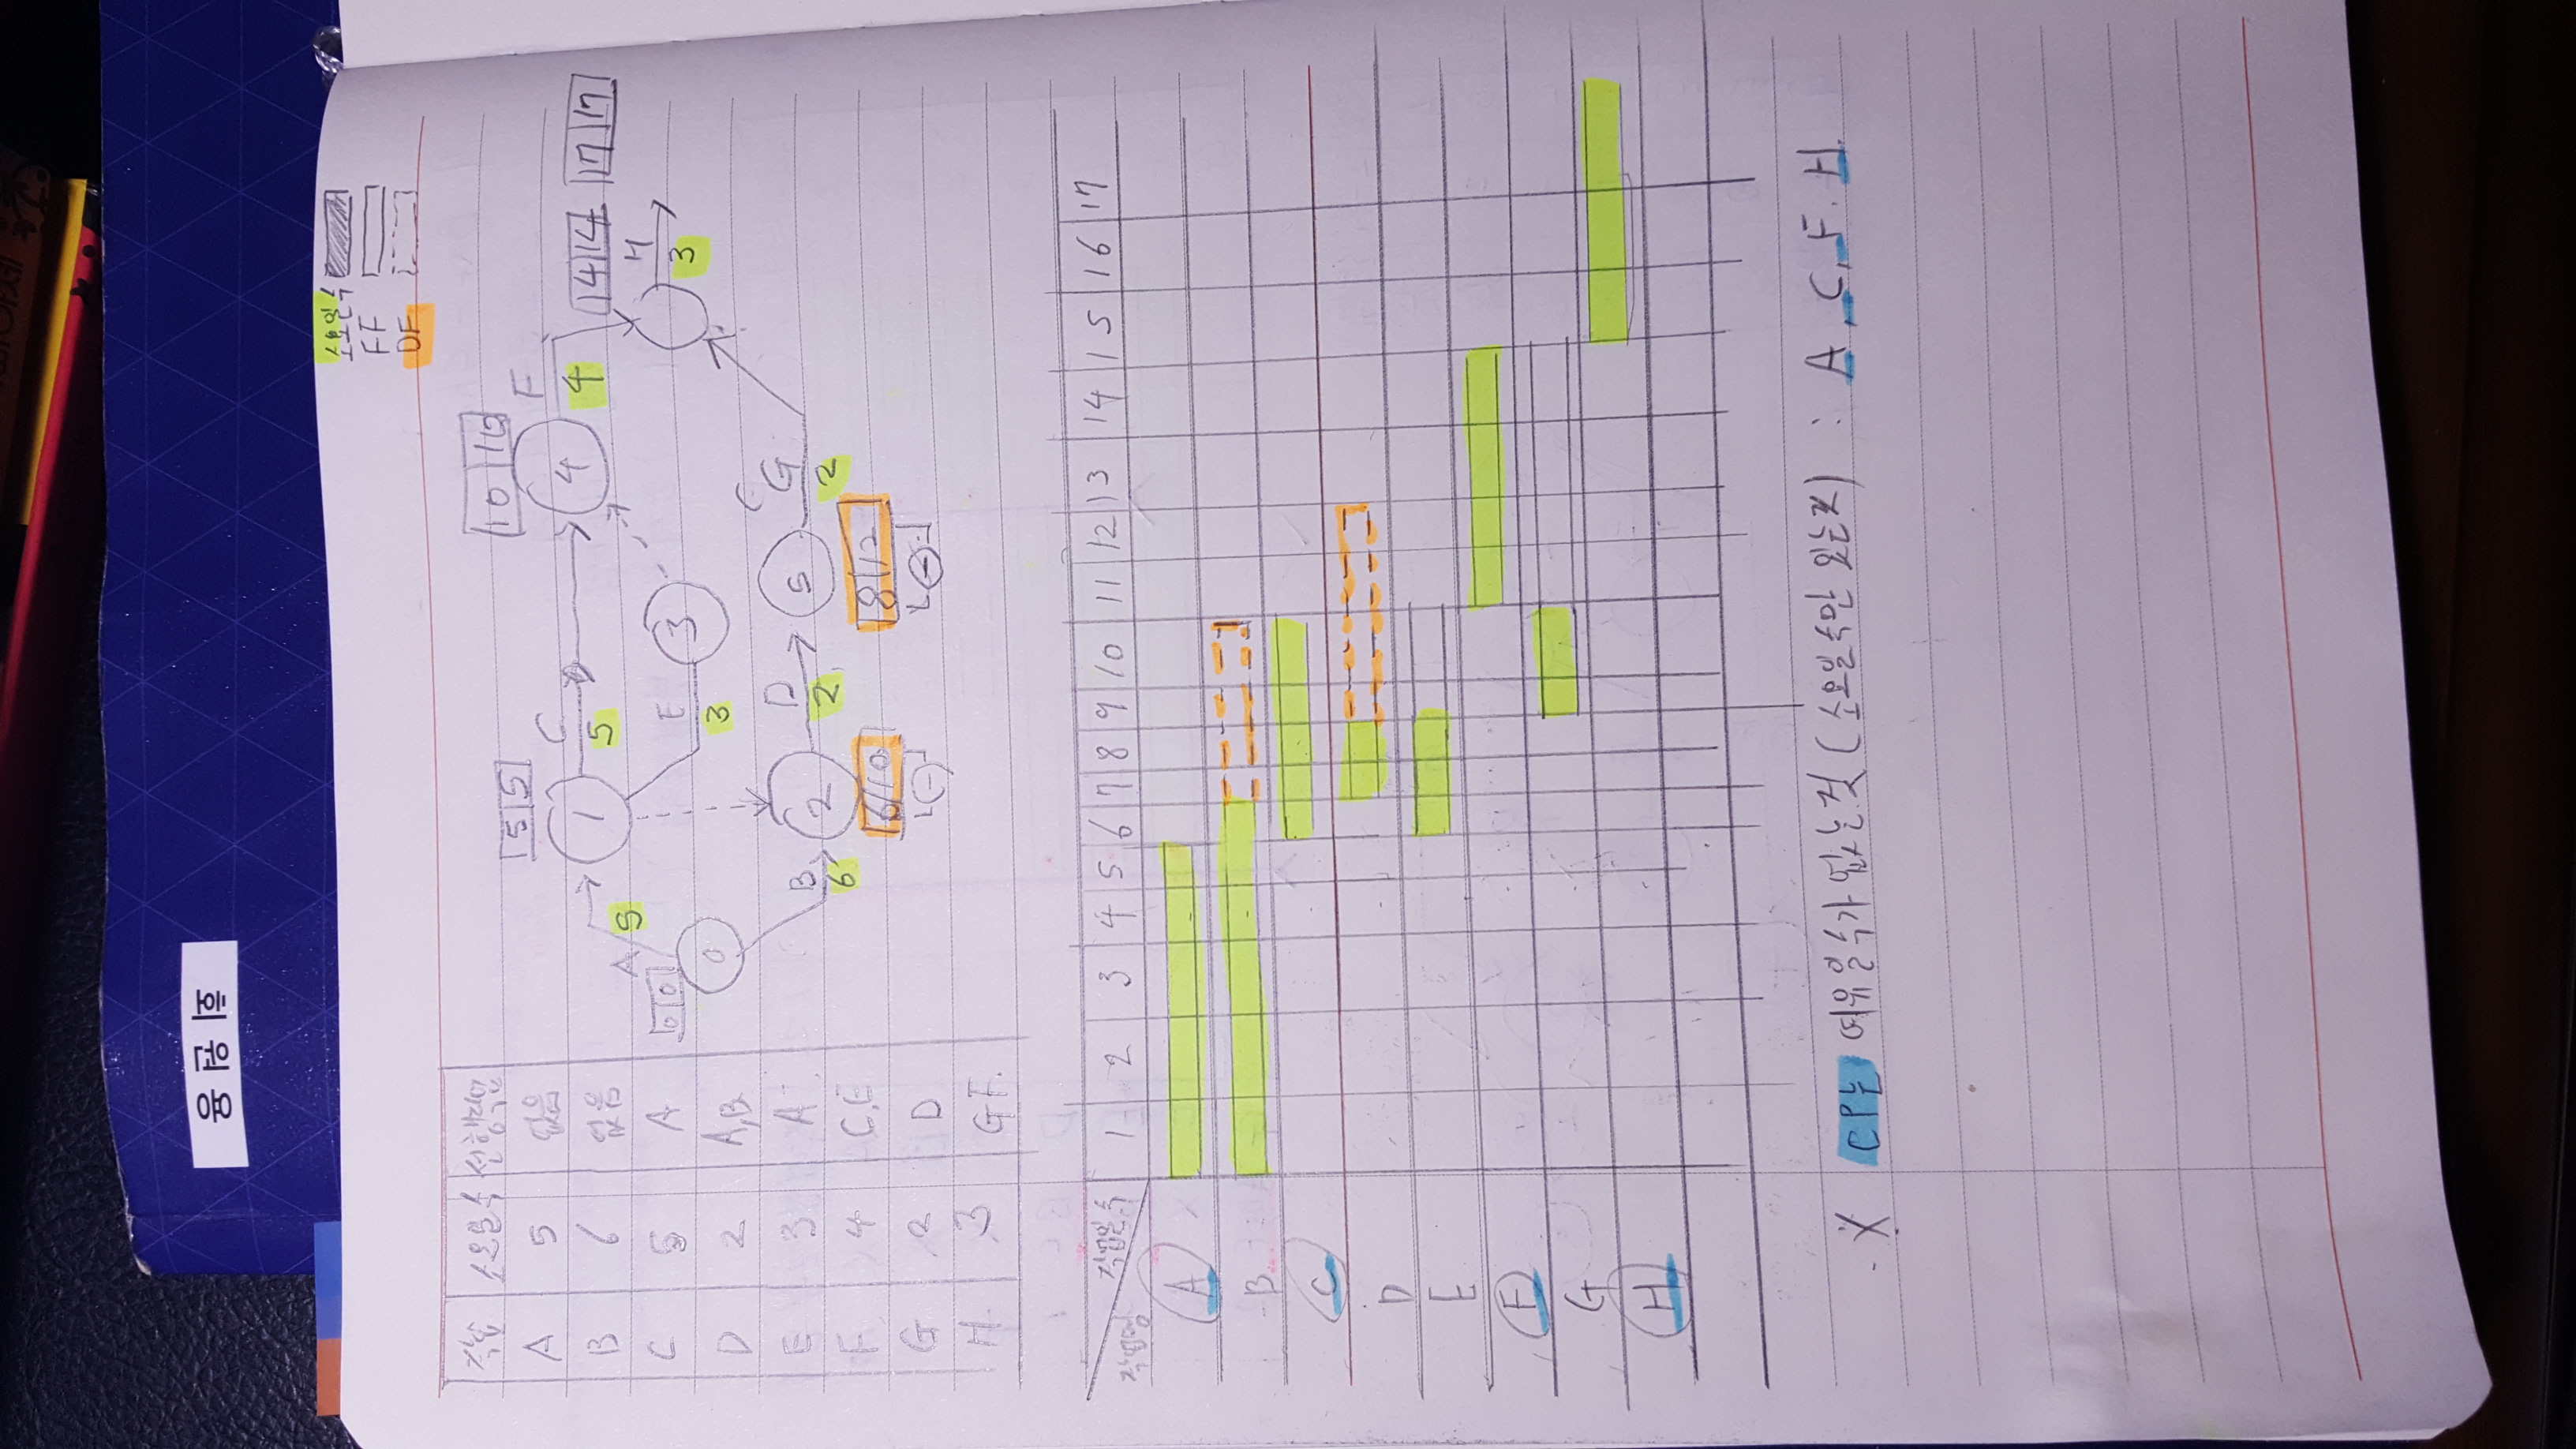 회원용
소요일수
FF
DF
작업 소요일수 선행작업
A 5 없음
B 6 없음
C 5 A
D 2 A,B
E 3 A
F 4 C,E
G 2 D
H 3 G F.
0 0
0
A
5
B
6
5 5
1
C
5
E
3
2
6 10
D
2
3
10 10
4
F
4
5
8 12
G
2
14 14
H
3
17 17
작업일수
작업명
1 2 3 4 5 6 7 8 9 10 11 12 13 14 15 16 17
A
B
C
D
E
F
G
H
※ CP는 여유일수가 없는것 (소요일수만 있는것) : A, C, F, H